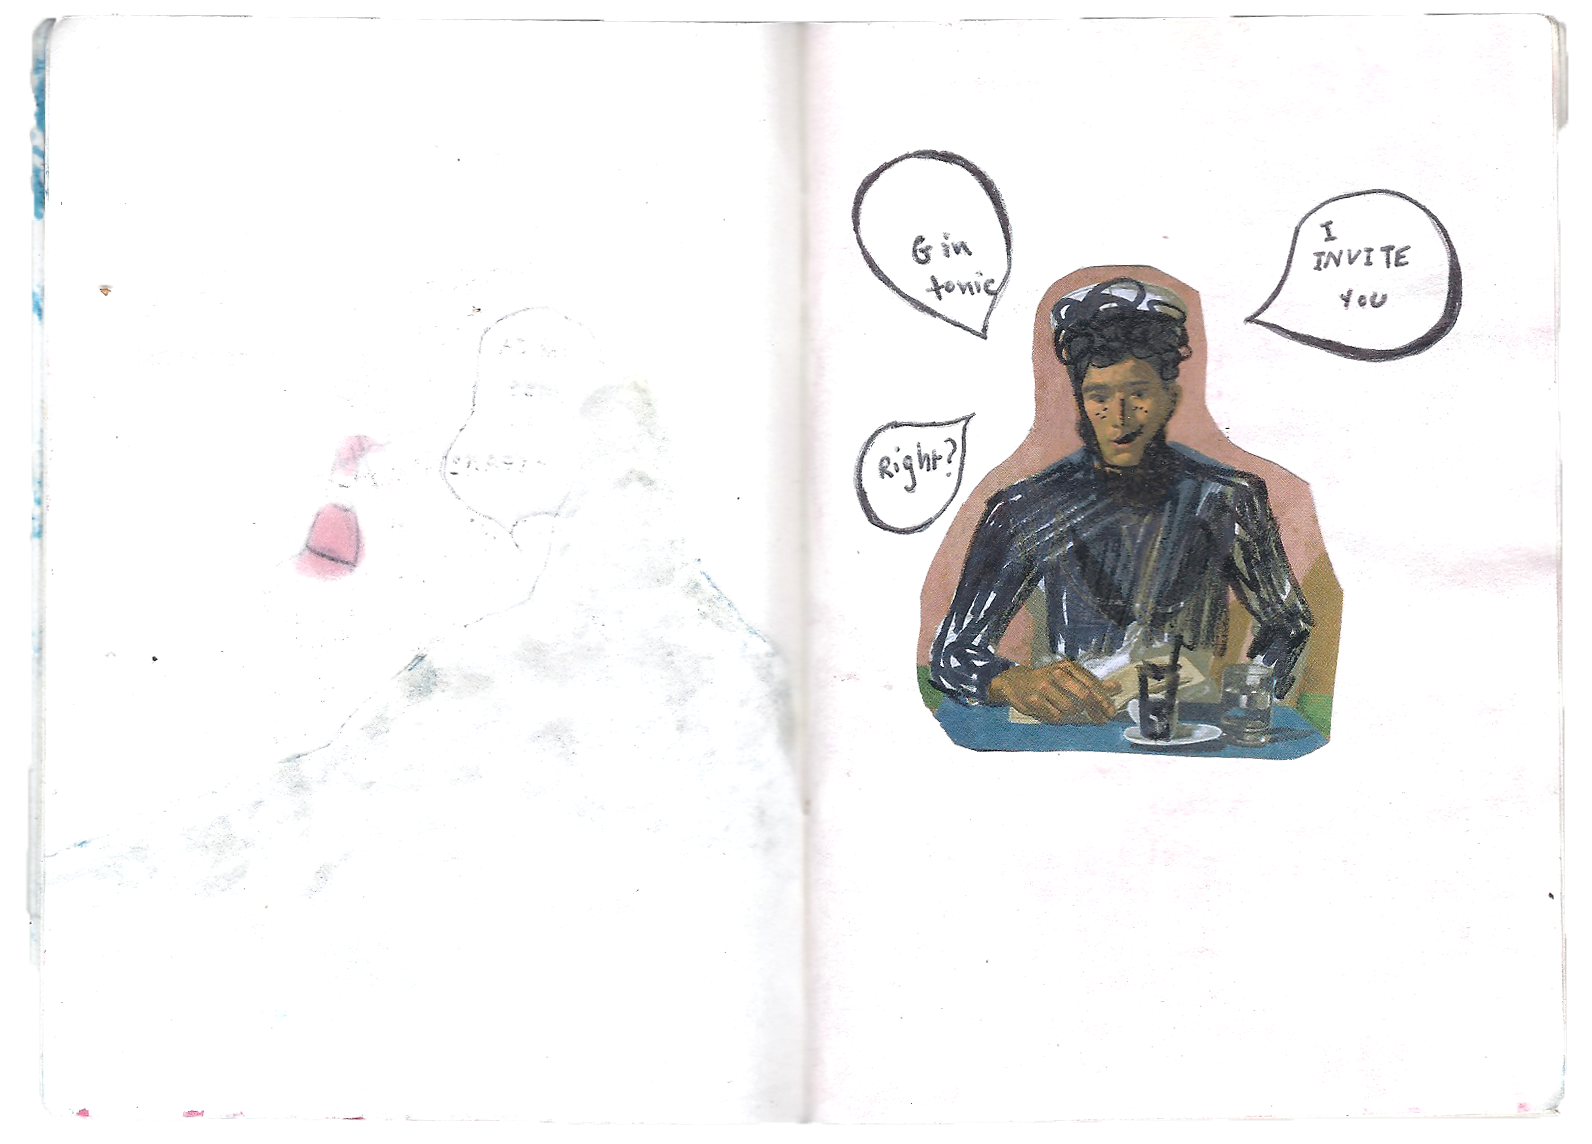 Gin
tonic
I
INVITE
YOU
Right?